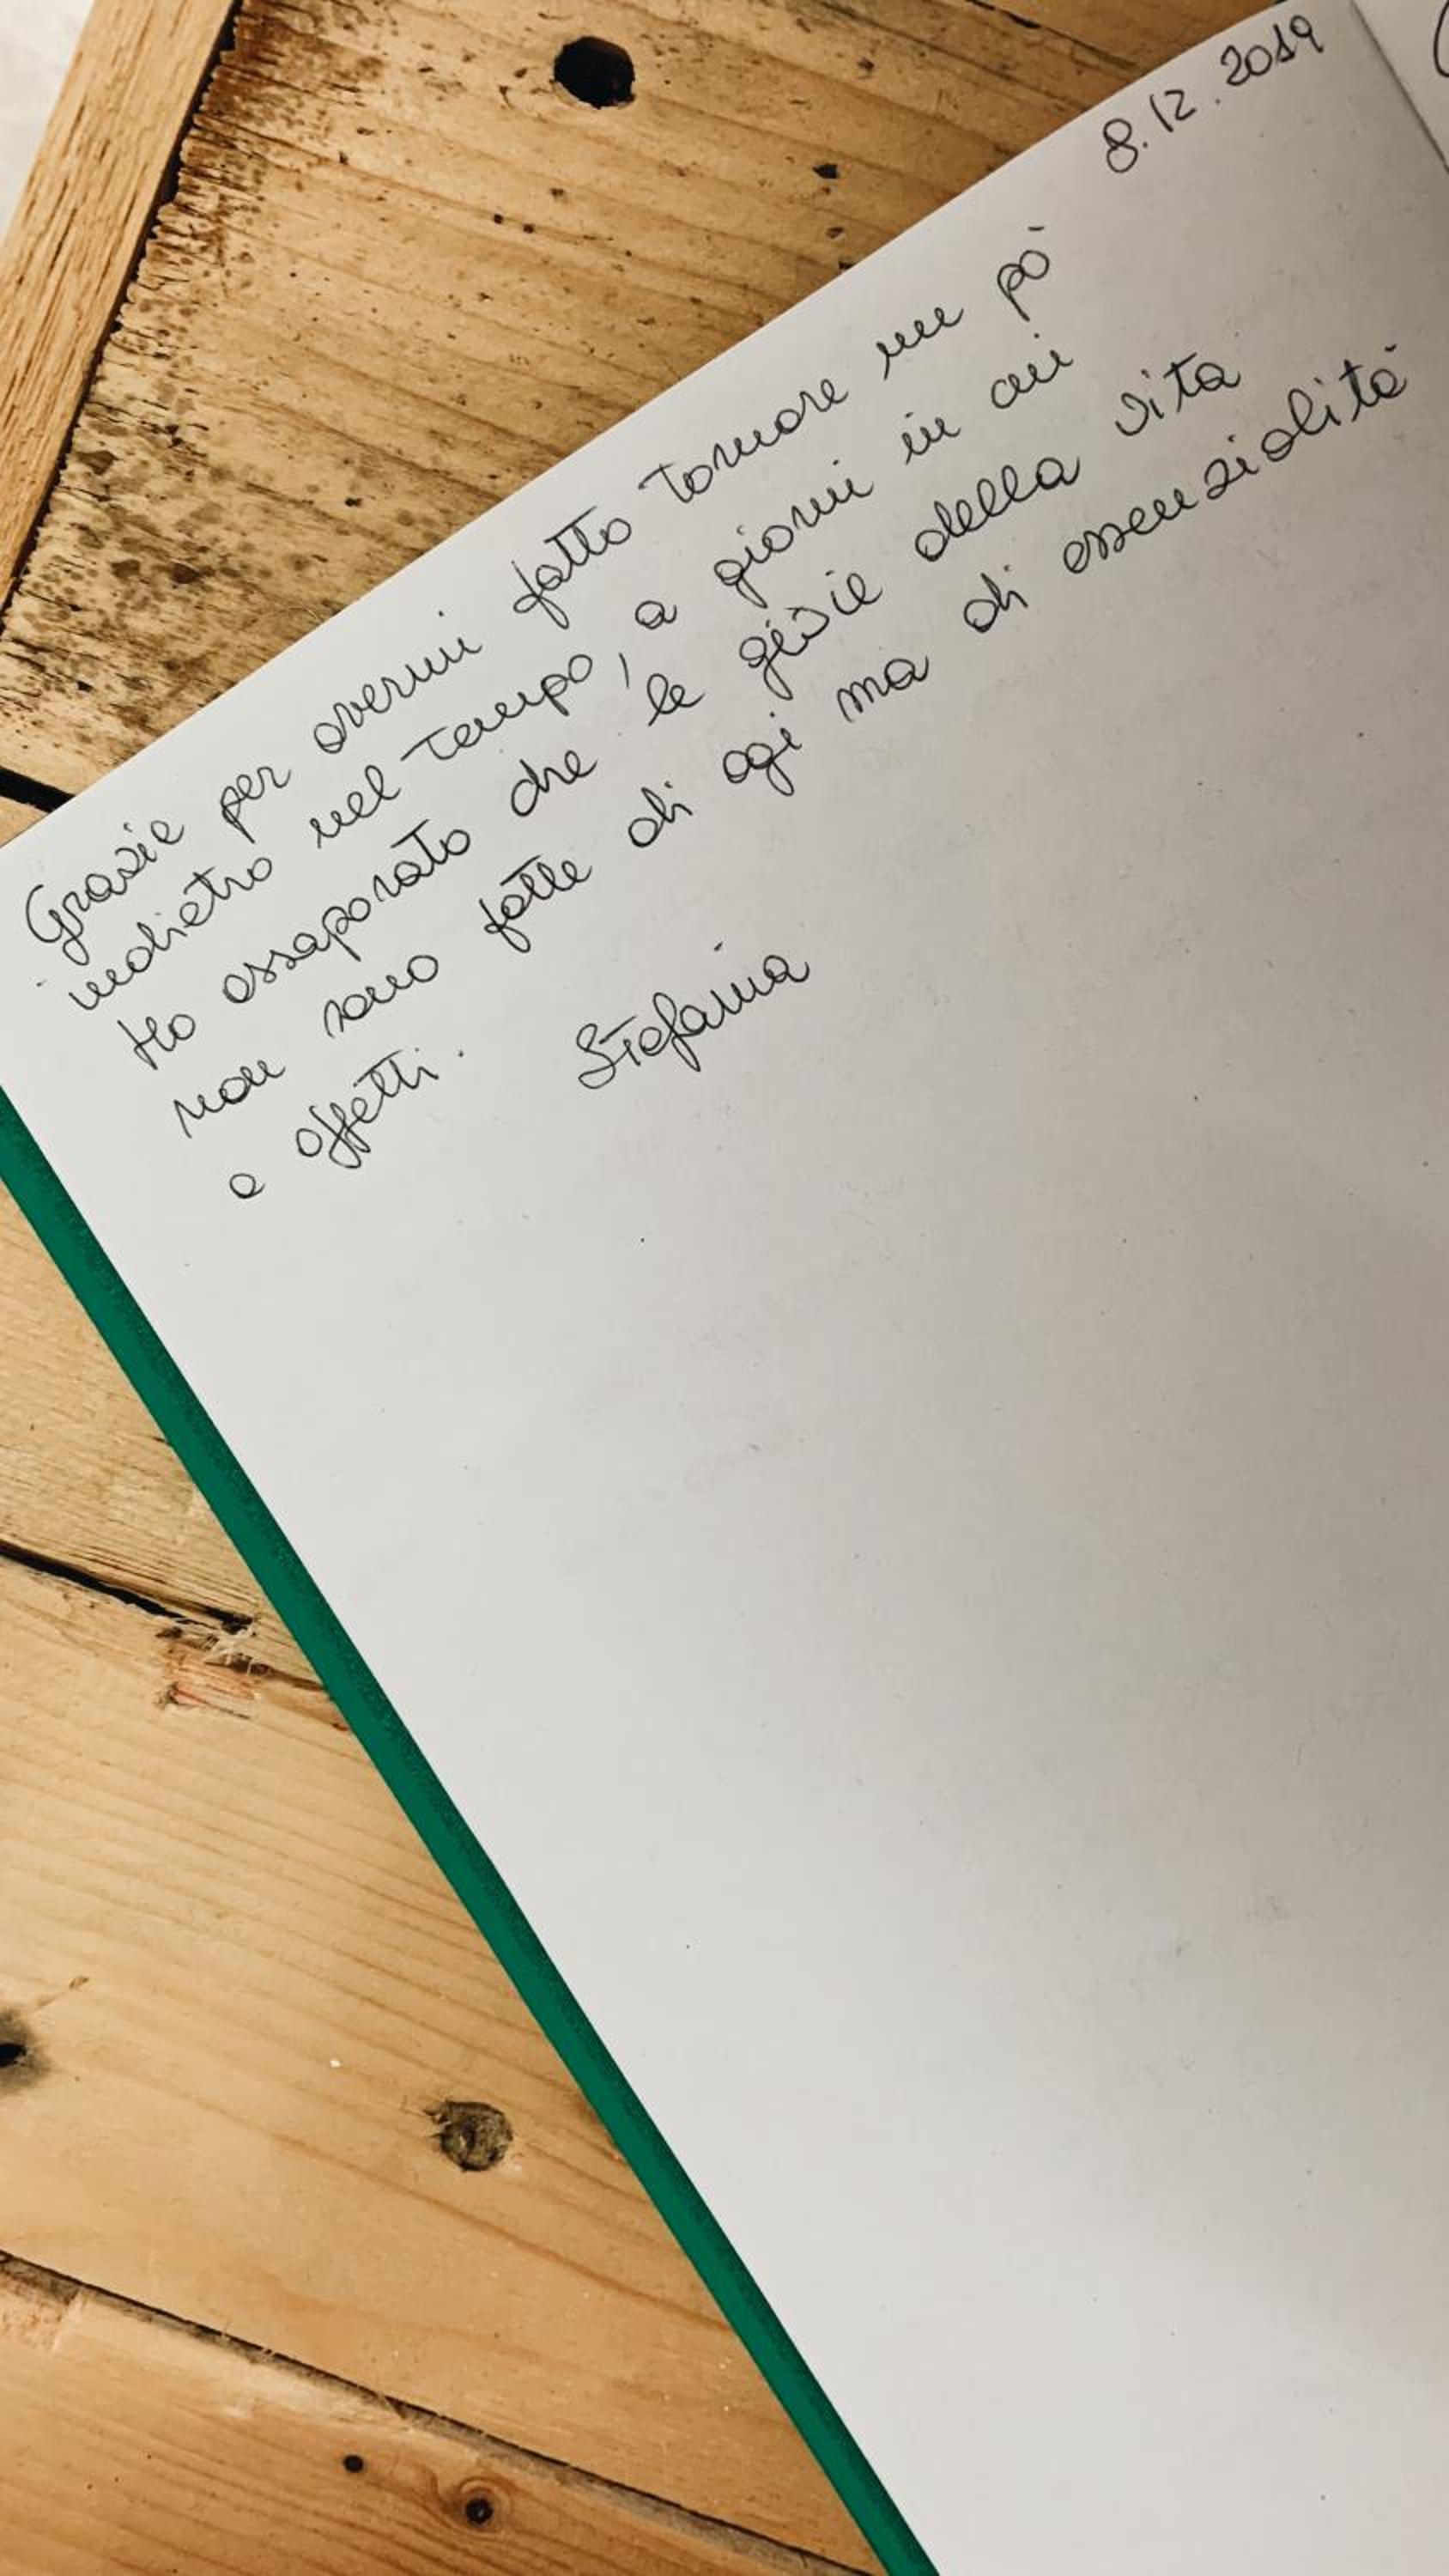 8.12.2019
Grazie per avermi fatto tornare un pò
indietro nel tempo, a giorni in cui
Ho assaporato che le gioie della vita
non sono fatte di agi ma di essenzialità
e affetti.
Stefania